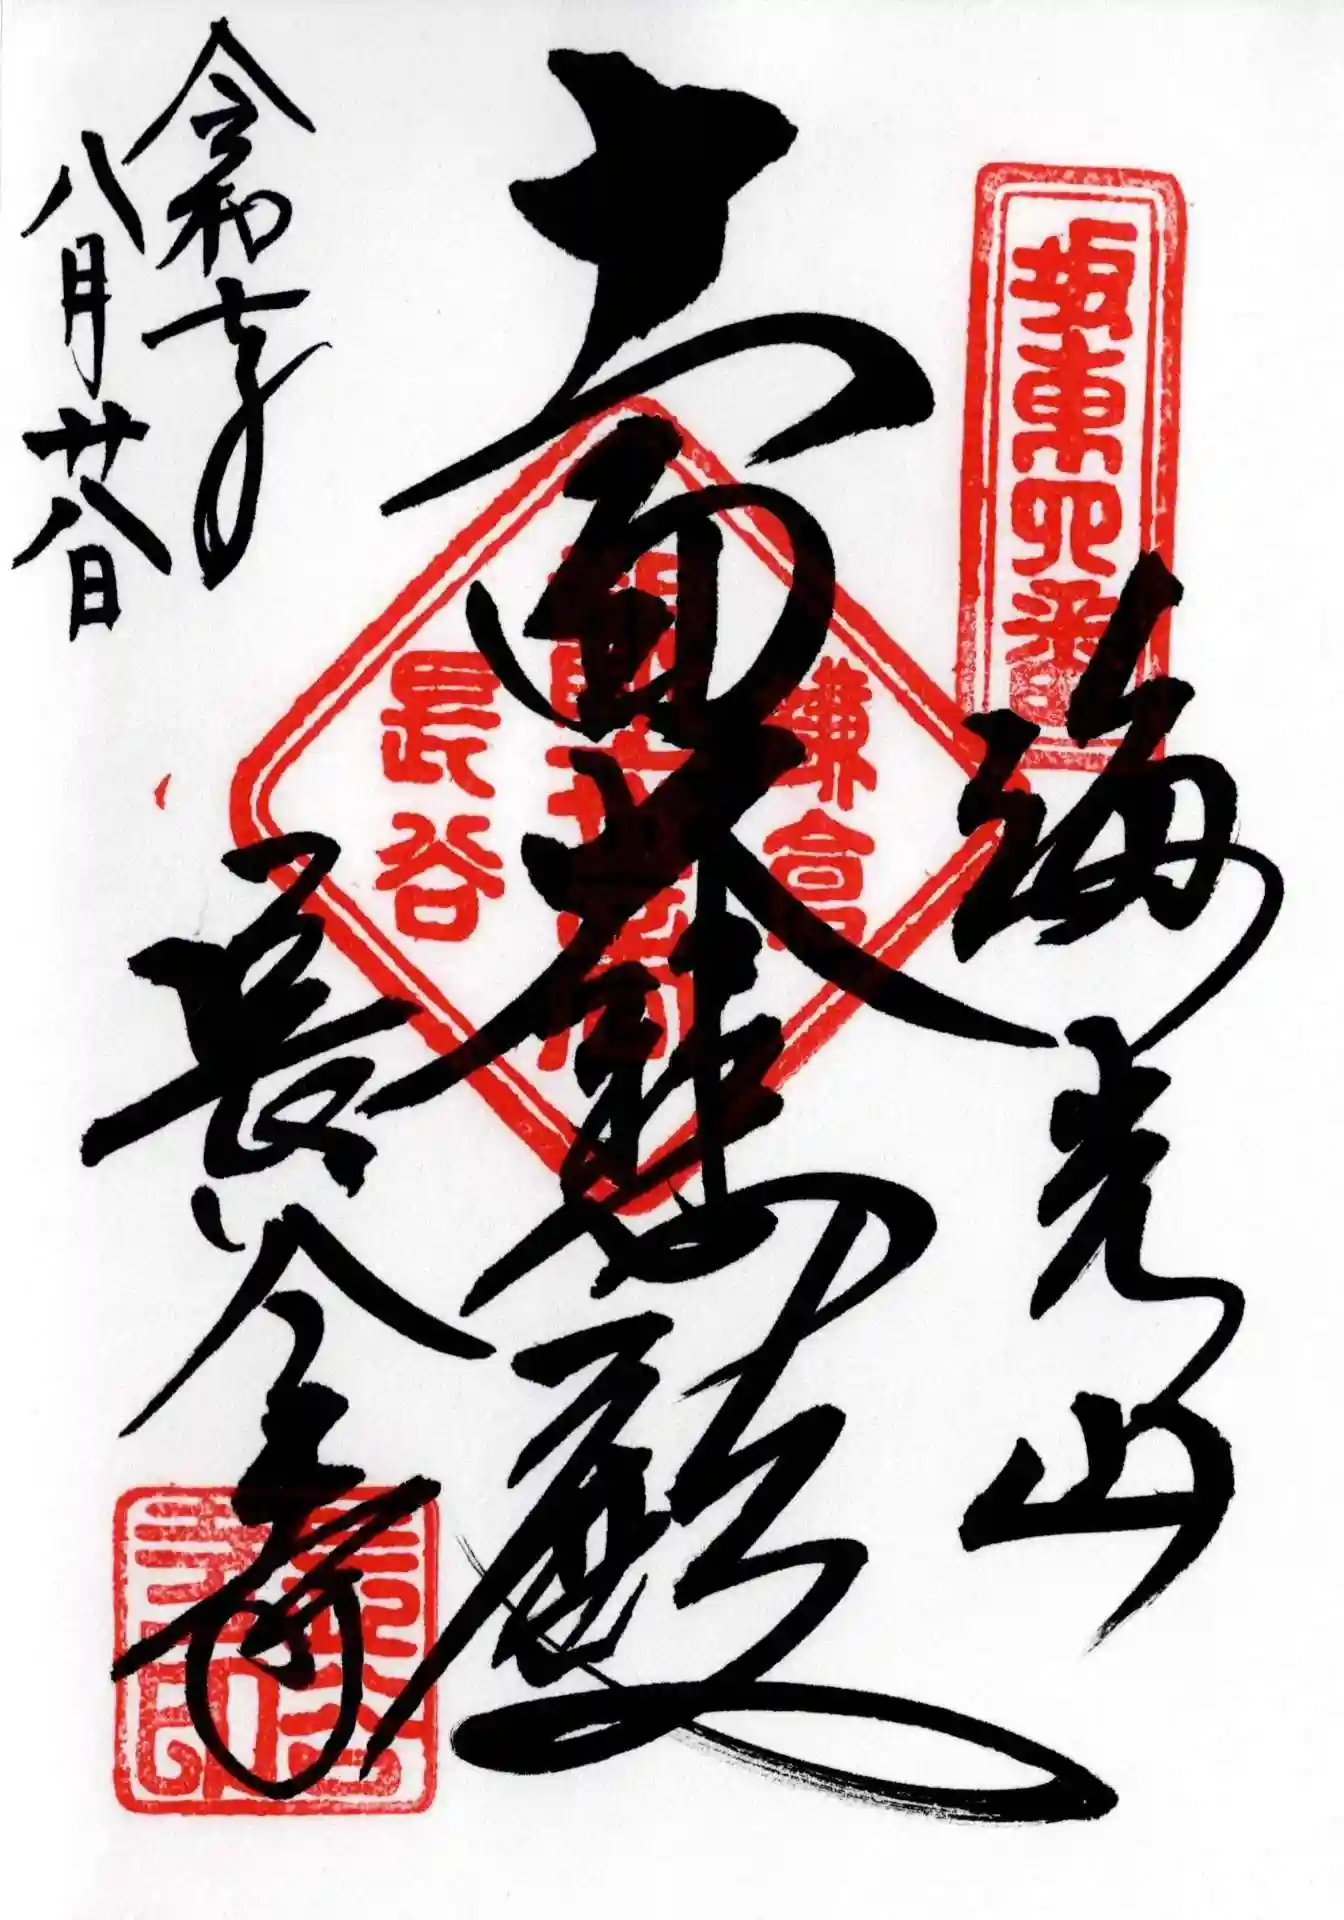 坂東四番
海光山
十一面大悲殿
鎌倉
長谷
長谷寺
長谷
寺印
令和
八月廿八日